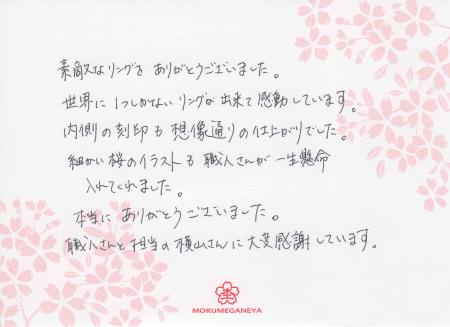 素敵なリングを ありがとうございました。
世界に1つしかないリングが出来て感動しています。
内側の刻印も想像通りの仕上がりでした。
細かい桜のイラストも職人さんが一生懸命
入れてくれました。
本当に ありがとうございました。
職人さんと担当の横山さんに大変感謝しています。
MOKUMEGANEYA